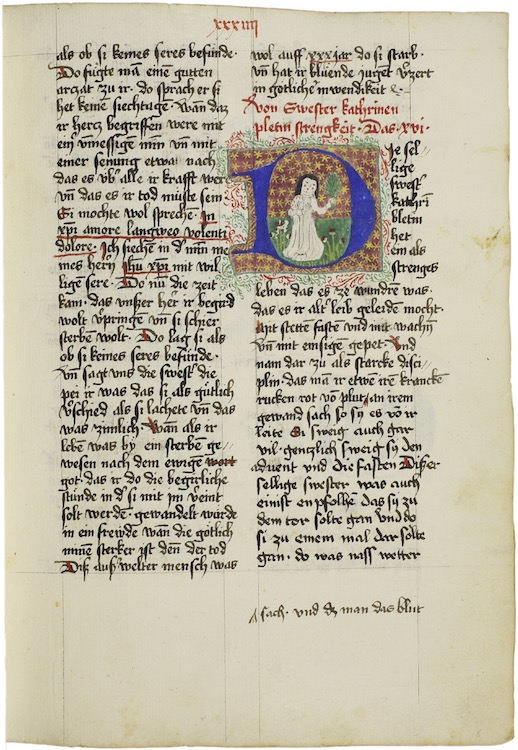 xxxiiij
als ob si keines seres befunde·
Do fůgte mā eine gutten
arczat zu ir· do sprach er si
het keine siechtage· wān daz
ir herz begriffen were mit
ein vmessige min vn̄ mit
einer senung etwaī nach
das es vb' alle ir krafft were
vn̄ das es ir tod můste sein
Si mochte wol spreche· In
xp̄i amore langweo volenti
dolore· Ich siechen in d' minn me
mes herr̄ Jhū xp̄i mit wil
lige sere· Do nu die zeit
kam· das vnßer her ir begird
wolt v'pringe vn̄ si schier
sterben wolt· Do lag si als
ob si keines seres befunde·
vn̄ sagt vns die swest' die
peī ir was das si als gütlich
v'schied als si lachete vn̄ das
was zimlich· wān als ir
lebē was by ein sterbē ge
wesen nach dem ewigē wort
got· das ir do die begirliche
stunde in d' si mit jm veint
solt werdē· gewandelt wurde
in ein frewde wān die gotlich
minē sterker ist den der tod
Diß außwelter mensch was
wol auff xxx jar do si starb·
vn̄ hat ir bluende juget v'zert
in gotliche inwendikeit
Von Swester kathrinen
pletin strengkeit· Das xvi·
DJe sel
lige
swest'
kathri
bletin
het
ein als
strenges
leben das es ze wundre was·
das es ir alt' leib geleiden mocht·
Mit stette faste vnd mit wachn̄
vn̄ mit einsigen gepet· Vnd
nam dar zu als starcke disci
plin· das mā ir etwē ire krancke
rucken rot vō plut an irem
gewand sach so sy es vō ir
leite Si sweig auch gar
vil· genczlich sweig sy den
aduent vnd die fasten Dißer
sellige swester was auch
einst enpfolhē das sy zu
dem tor solte gan vnd do
si zu einem mal dar solte
gan· do was nass wetter
sach· vnd dz man das blut